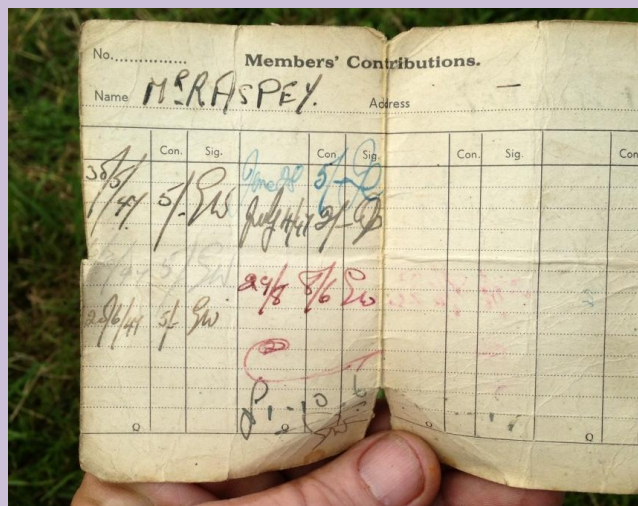 No. Members' Contributions.
Name Mr RASPEY. Address —
Con. Sig. Con. Sig. Con. Sig. Con.
30/5/47 5/- EW June 28 5/-
July 11/47 2/-
5/- EW
29/8 8/6 EW
28/6/47 5/- EW
£1-10